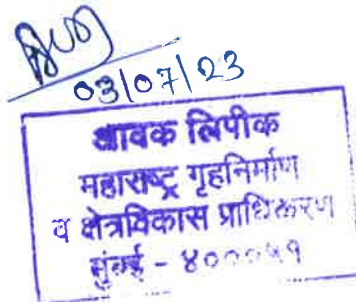 03/07/23
आवक लिपीक
महाराष्ट्र गृहनिर्माण
व क्षेत्रविकास प्राधिकरण
मुंबई - ४०००५१